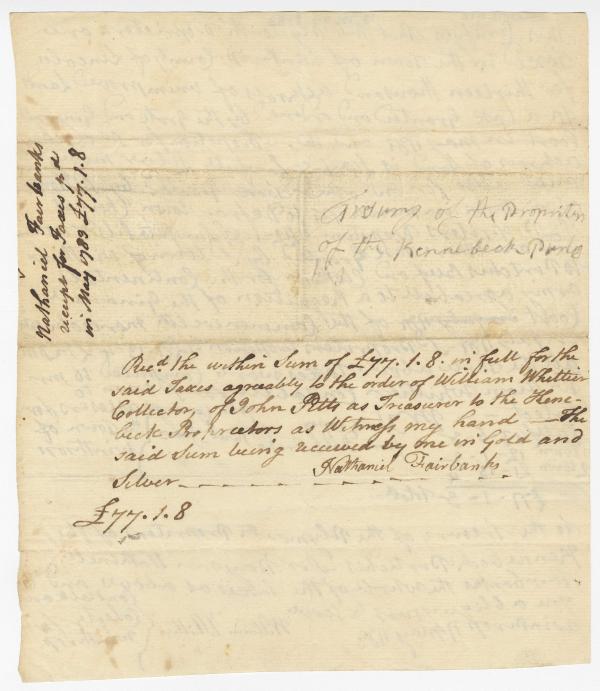 Nathaniel Fairbanks
receipt for Taxes pd
in May 1783 £77.1.8
of the Propriters
of the Kennebeck Purc
Rec.d the within Sum of £77.1.8. in full for the
said Taxes agreably to the order of William Whittier
Collector, of John Pitts as Treasurer to the Kene-
beck Proprietors as Witness my hand — The
said Sum being received by me in Gold and
Silver
Nathaniel Fairbanks
£77.1.8